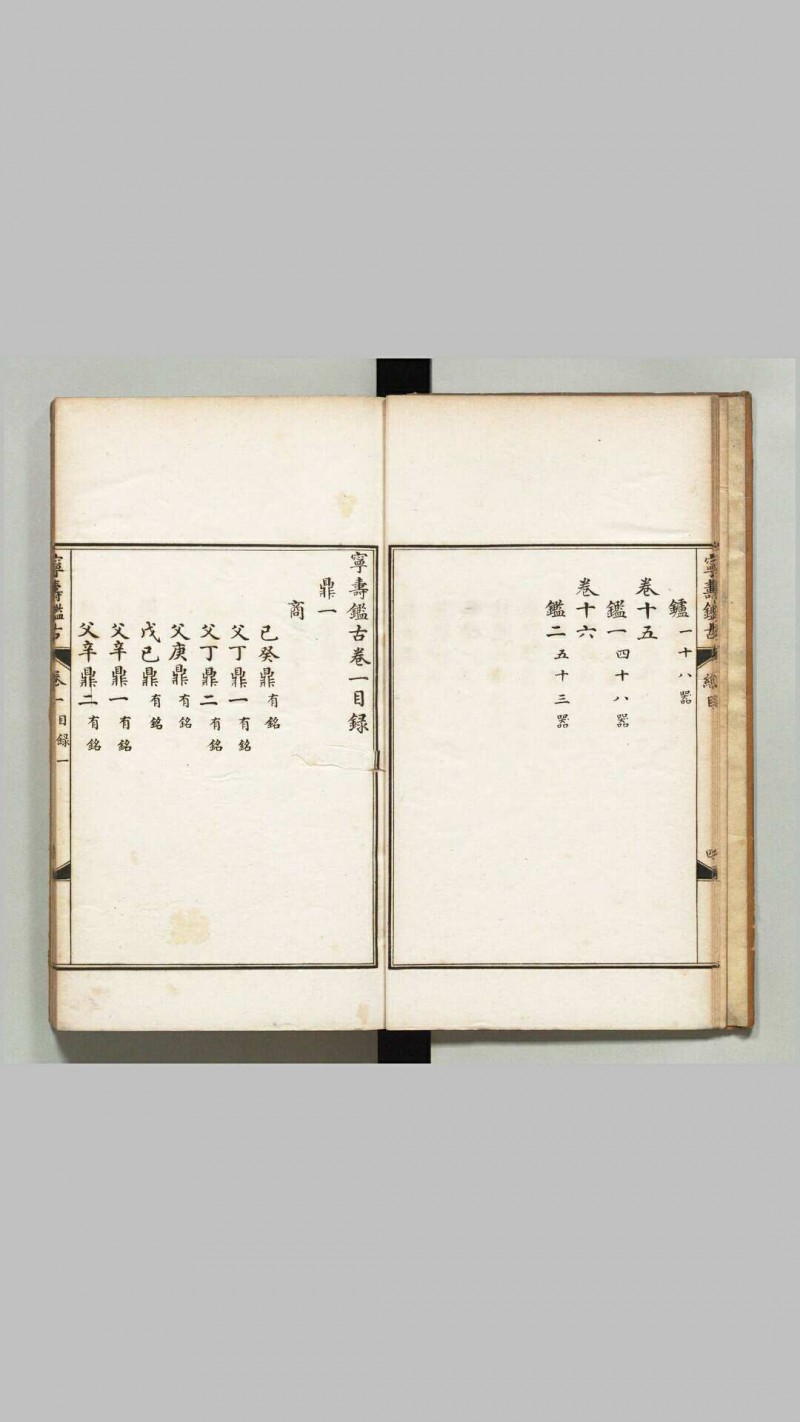 鑪一十八器
卷十五
鑑一四十八器
卷十六
鑑二五十三器
寧壽鑑古卷一目録
鼎一
商
己癸鼎有銘
父丁鼎一有銘
父丁鼎二有銘
父庚鼎有銘
戊己鼎有銘
父辛鼎一有銘
父辛鼎二有銘
寧壽鑑古 卷一目録 一